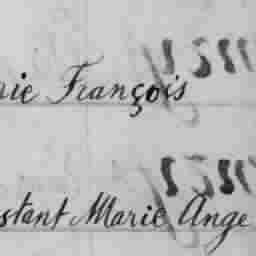 rie François
stant Marie Ange